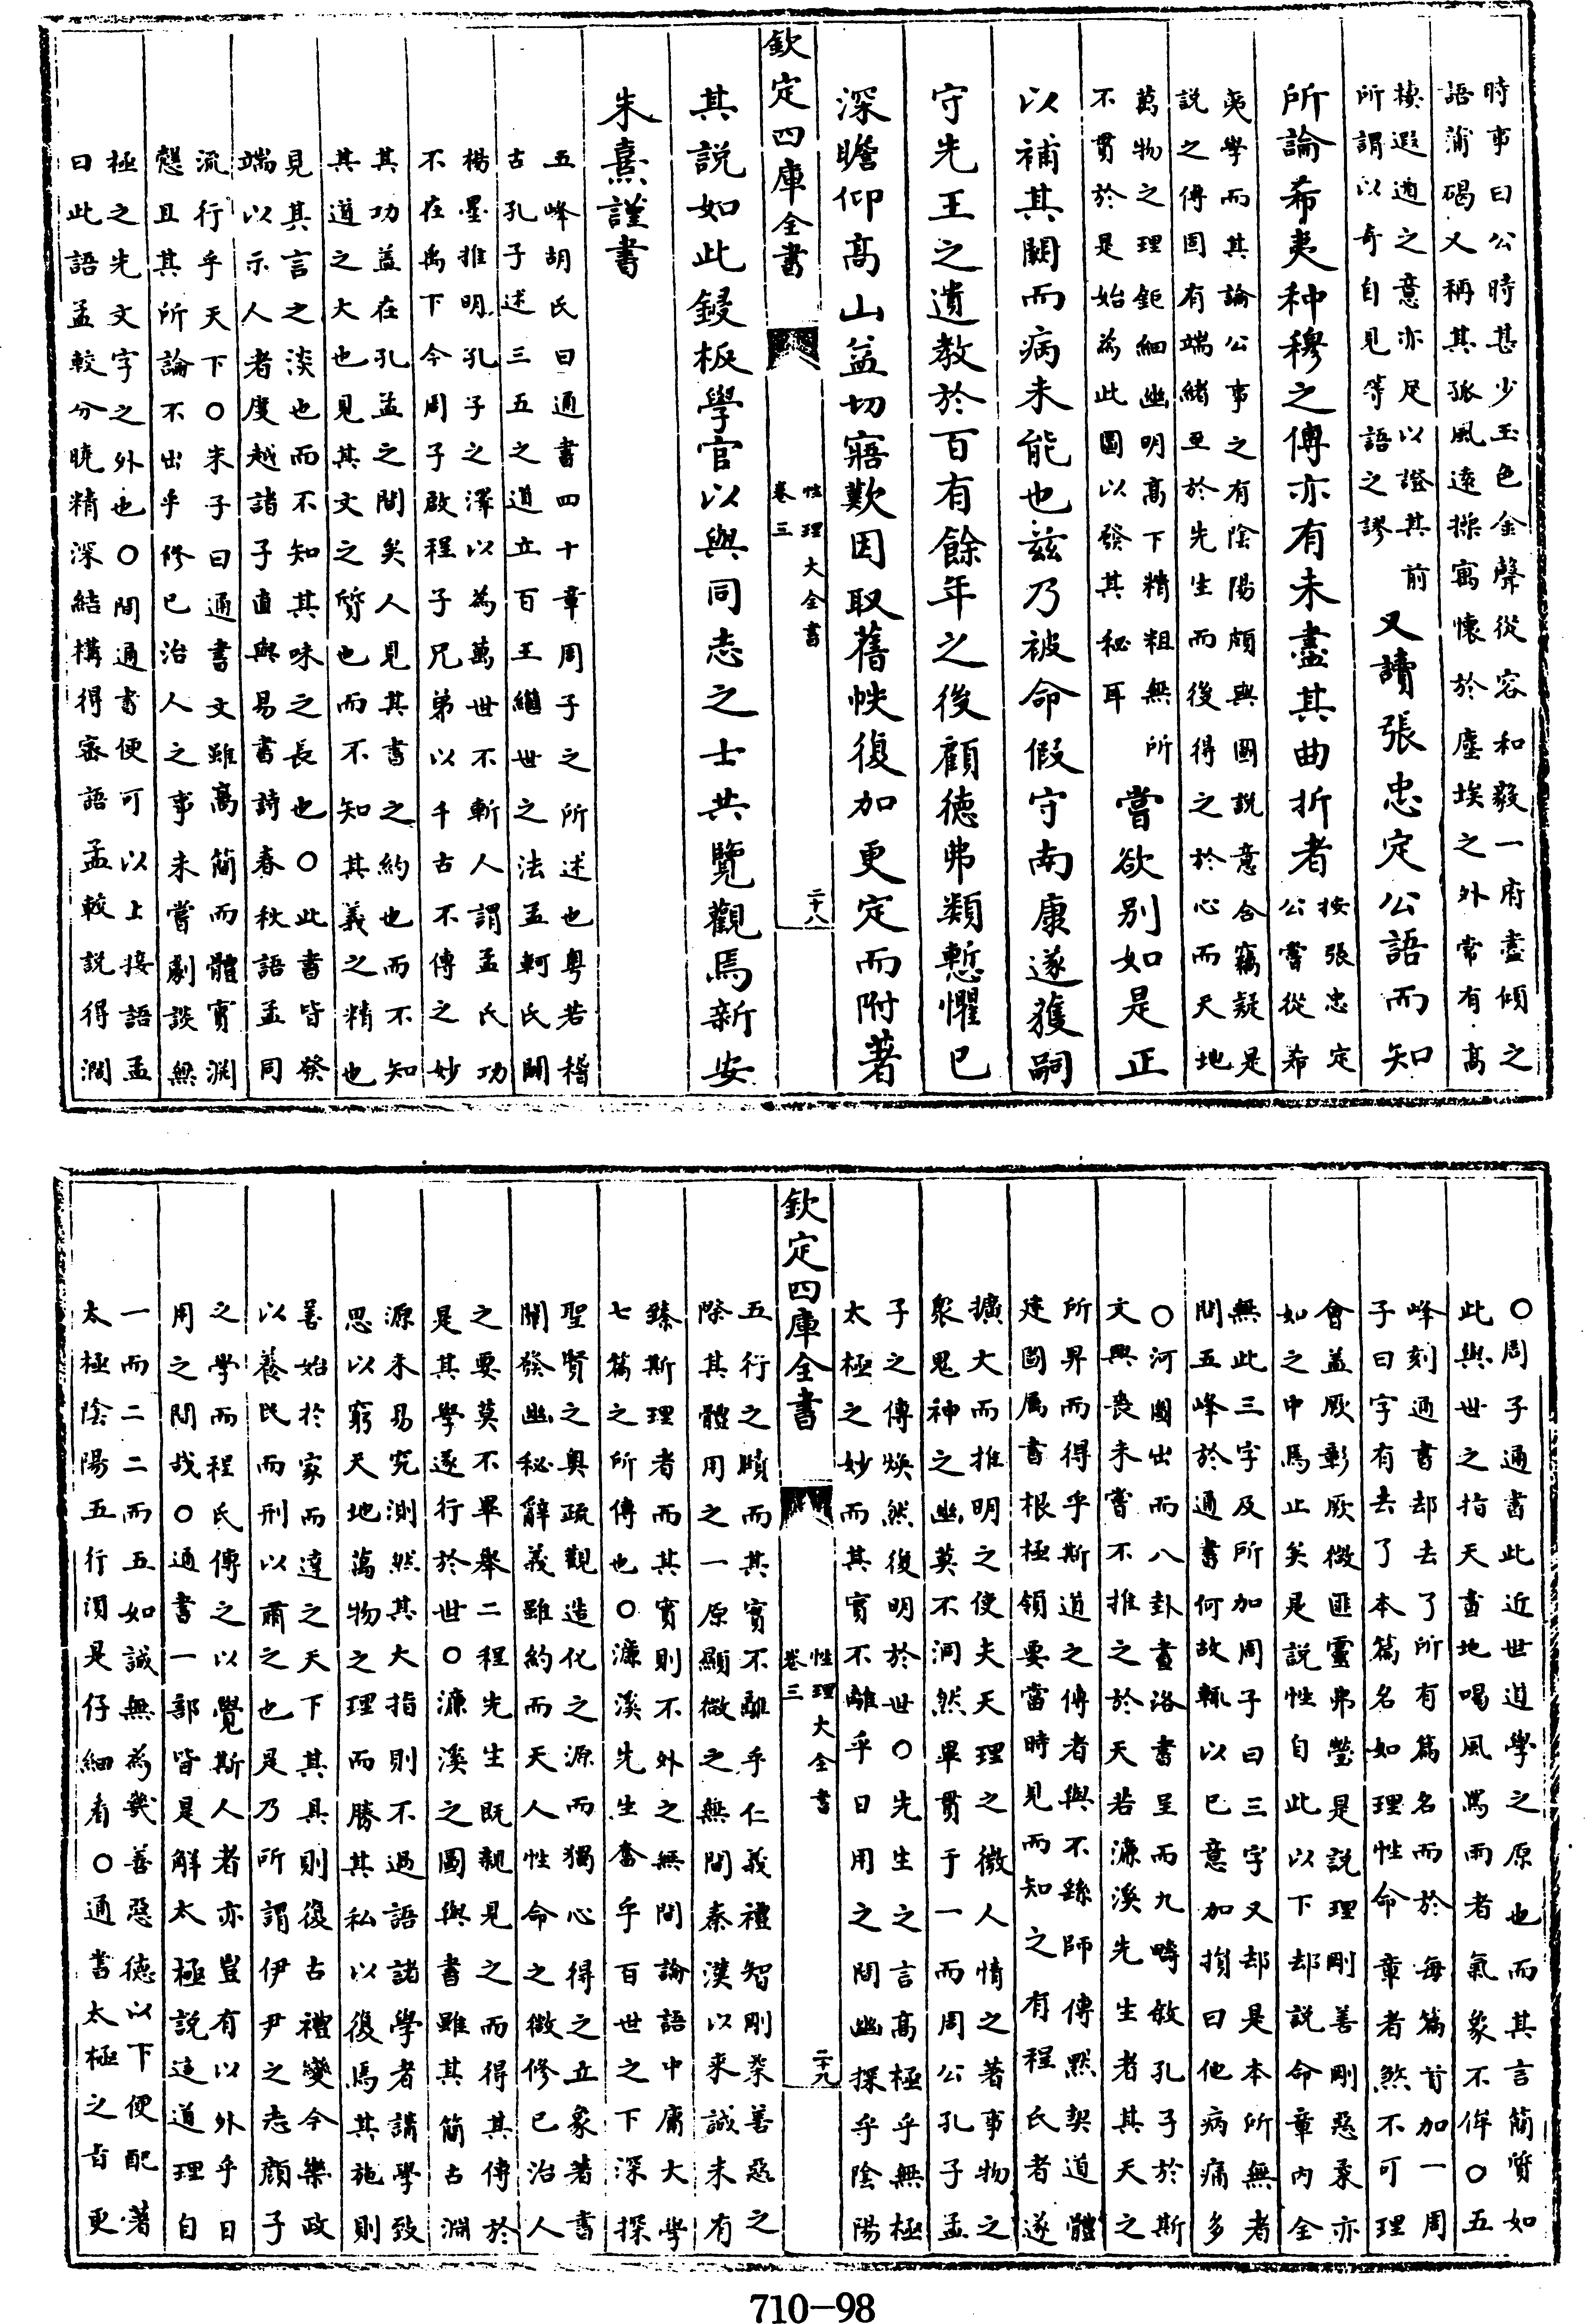 時事曰公時甚少玉色金聲從容和毅一府盡傾之
語蒲碣又稱其孤風遠操寓懷於塵埃之外常有髙
棲遐遁之意亦足以證其前
所謂以奇自見等語之謬
又讀張忠定公語而知
所論希夷种穆之傳亦有未盡其曲折者
按張忠定
公嘗從希
夷學而其論公事之有陰陽頗與圖説意合竊疑是
説之傳固有端緒至於先生而後得之於心而天地
萬物之理鉅細幽明髙下精粗無所
不貫於是始為此圖以發其秘耳
嘗欲别如是正
以補其闕而病未能也兹乃被命假守南康遂獲嗣
守先王之遺教於百有餘年之後顧徳弗類慙懼已
深瞻仰髙山益切寤歎因取舊帙復加更定而附著
欽定四庫全書
性理大全書
卷三
二十八
其説如此鋟板學官以與同志之士共覽觀焉新安
朱熹謹書
五峰胡氏曰通書四十章周子之所述也粤若稽
古孔子述三五之道立百王繼世之法孟軻氏闢
楊墨推明孔子之澤以為萬世不斬人謂孟氏功
不在禹下今周子啟程子兄弟以千古不傳之妙
其功葢在孔孟之間矣人見其書之約也而不知
其道之大也見其文之質也而不知其義之精也
見其言之淡也而不知其味之長也○此書皆發
端以示人者度越諸子直與易書詩春秋語孟同
流行乎天下○朱子曰通書文雖髙簡而體實淵
慤且其所論不出乎修已治人之事未嘗劇談無
極之先文字之外也○問通書便可以上接語孟
曰此語孟較分曉精深結構得宻語孟較説得濶
○周子通書此近世道學之原也而其言簡質如
此與世之指天畫地喝風罵雨者氣象不侔○五
峰刻通書却去了所有篇名而於每篇首加一周
子曰字有去了本篇名如理性命章者煞不可理
會葢厥彰厥微匪靈弗瑩是説理剛善剛惡柔亦
如之中焉止矣是説性自此以下却説命章内全
無此三字及所加周子曰三字又却是本所無者
問五峰於通書何故輒以已意加損曰他病痛多
○河圖出而八卦畫洛書呈而九疇敘孔子於斯
文興喪未嘗不推之於天若濓溪先生者其天之
所畀而得乎斯道之傳者與不繇師傳黙契道體
建圖屬書根極領要當時見而知之有程氏者遂
擴大而推明之使夫天理之微人情之著事物之
衆鬼神之幽莫不洞然畢貫于一而周公孔子孟
子之傳煥然復明於世○先生之言髙極乎無極
太極之妙而其實不離乎日用之間幽探乎隂陽
欽定四庫全書
性理大全書
卷三
二十九
五行之賾而其實不離乎仁義禮智剛柔善惡之
際其體用之一原顯微之無間秦漢以來誠未有
臻斯理者而其實則不外之無間論語中庸大學
七篇之所傳也○濂溪先生奮乎百世之下深探
聖賢之奥疏觀造化之源而獨心得之立象著書
闡發幽秘辭義雖約而天人性命之微修已治人
之要莫不畢舉二程先生既親見之而得其傳於
是其學遂行於世○濓溪之圖與書雖其簡古淵
源未易究測然其大指則不過語諸學者講學致
思以窮天地萬物之理而勝其私以復焉其施則
善始於家而達之天下其具則復古禮變今樂政
以養民而刑以肅之也是乃所謂伊尹之志顔子
之學而程氏傳之以覺斯人者亦豈有以外乎日
用之間哉○通書一部皆是解太極説這道理自
一而二二而五如誠無為㡬善惡徳以下便配著
太極陰陽五行須是仔細看○通書太極之㫖更
710-98